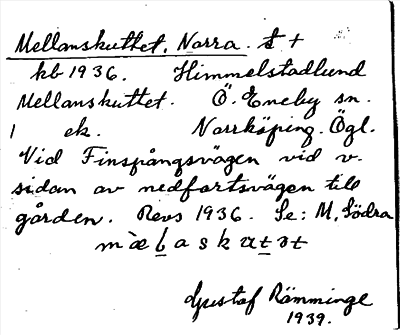 Mellanskuttet, Norra. t +
kb 1936. Himmelstadlund
Mellanskuttet. Ö. Eneby sn.
1 ek. Norrköping. Ögl.
Vid Finspångsvägen vid v.
sidan av nedfartsvägen till
gården. Revs 1936. Se: M, Södra
Gustaf Rämminge
1939.